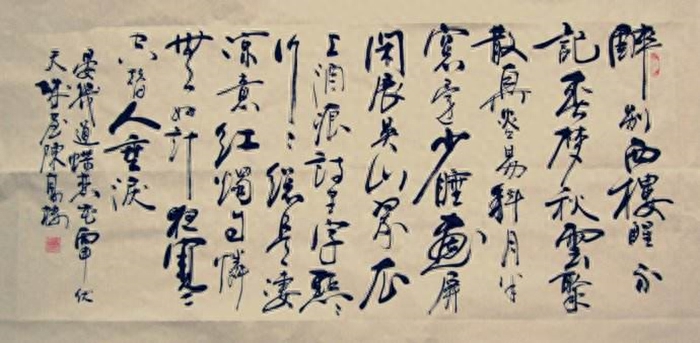 醉别西樓醒不
記春梦秋雲聚
散真容易斜月半
窗字少睡畫屏
閑展吴山翠衣
上酒痕詩里字點點
行行總是凄
凉意紅燭自憐
無好計夜寒
空替人垂淚
晏幾道蝶恋花
天屋陳